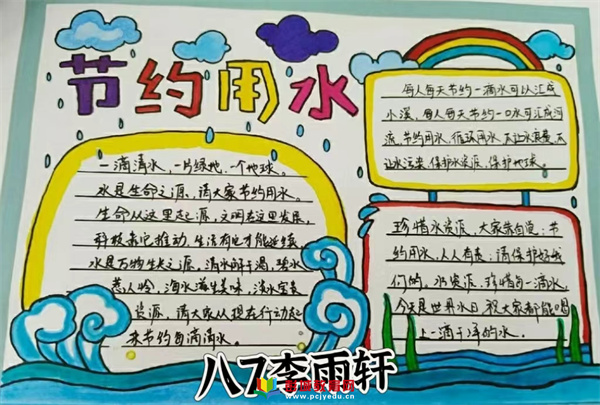 节约用水
一滴清水,一片绿地,一个地球。
水是生命之源,请大家节约用水。
生命从这里起源,文明在这里发展,
科技靠它推动,生活有它才能延续,
水是万物生长之源,清水解干渴,碧水
惹人怜,海水滋生美味,淡水宝贵
资源,请大家从现在行动起
来节约每滴清水。
每人每天节约一滴水可以汇成
小溪,每人每天节约一口水可汇成河
流,节约用水,循环用水,不让水浪费,不
让水污染,保护水资源,保护地球。
珍惜水资源,大家靠自觉:节
约用水,人人有责:请保护好我
们的,水资源,珍惜每一滴水,
今天是世界水日祝大家都能喝
上一滴干净的水。
八7李雨轩
www.pcjyedu.cn